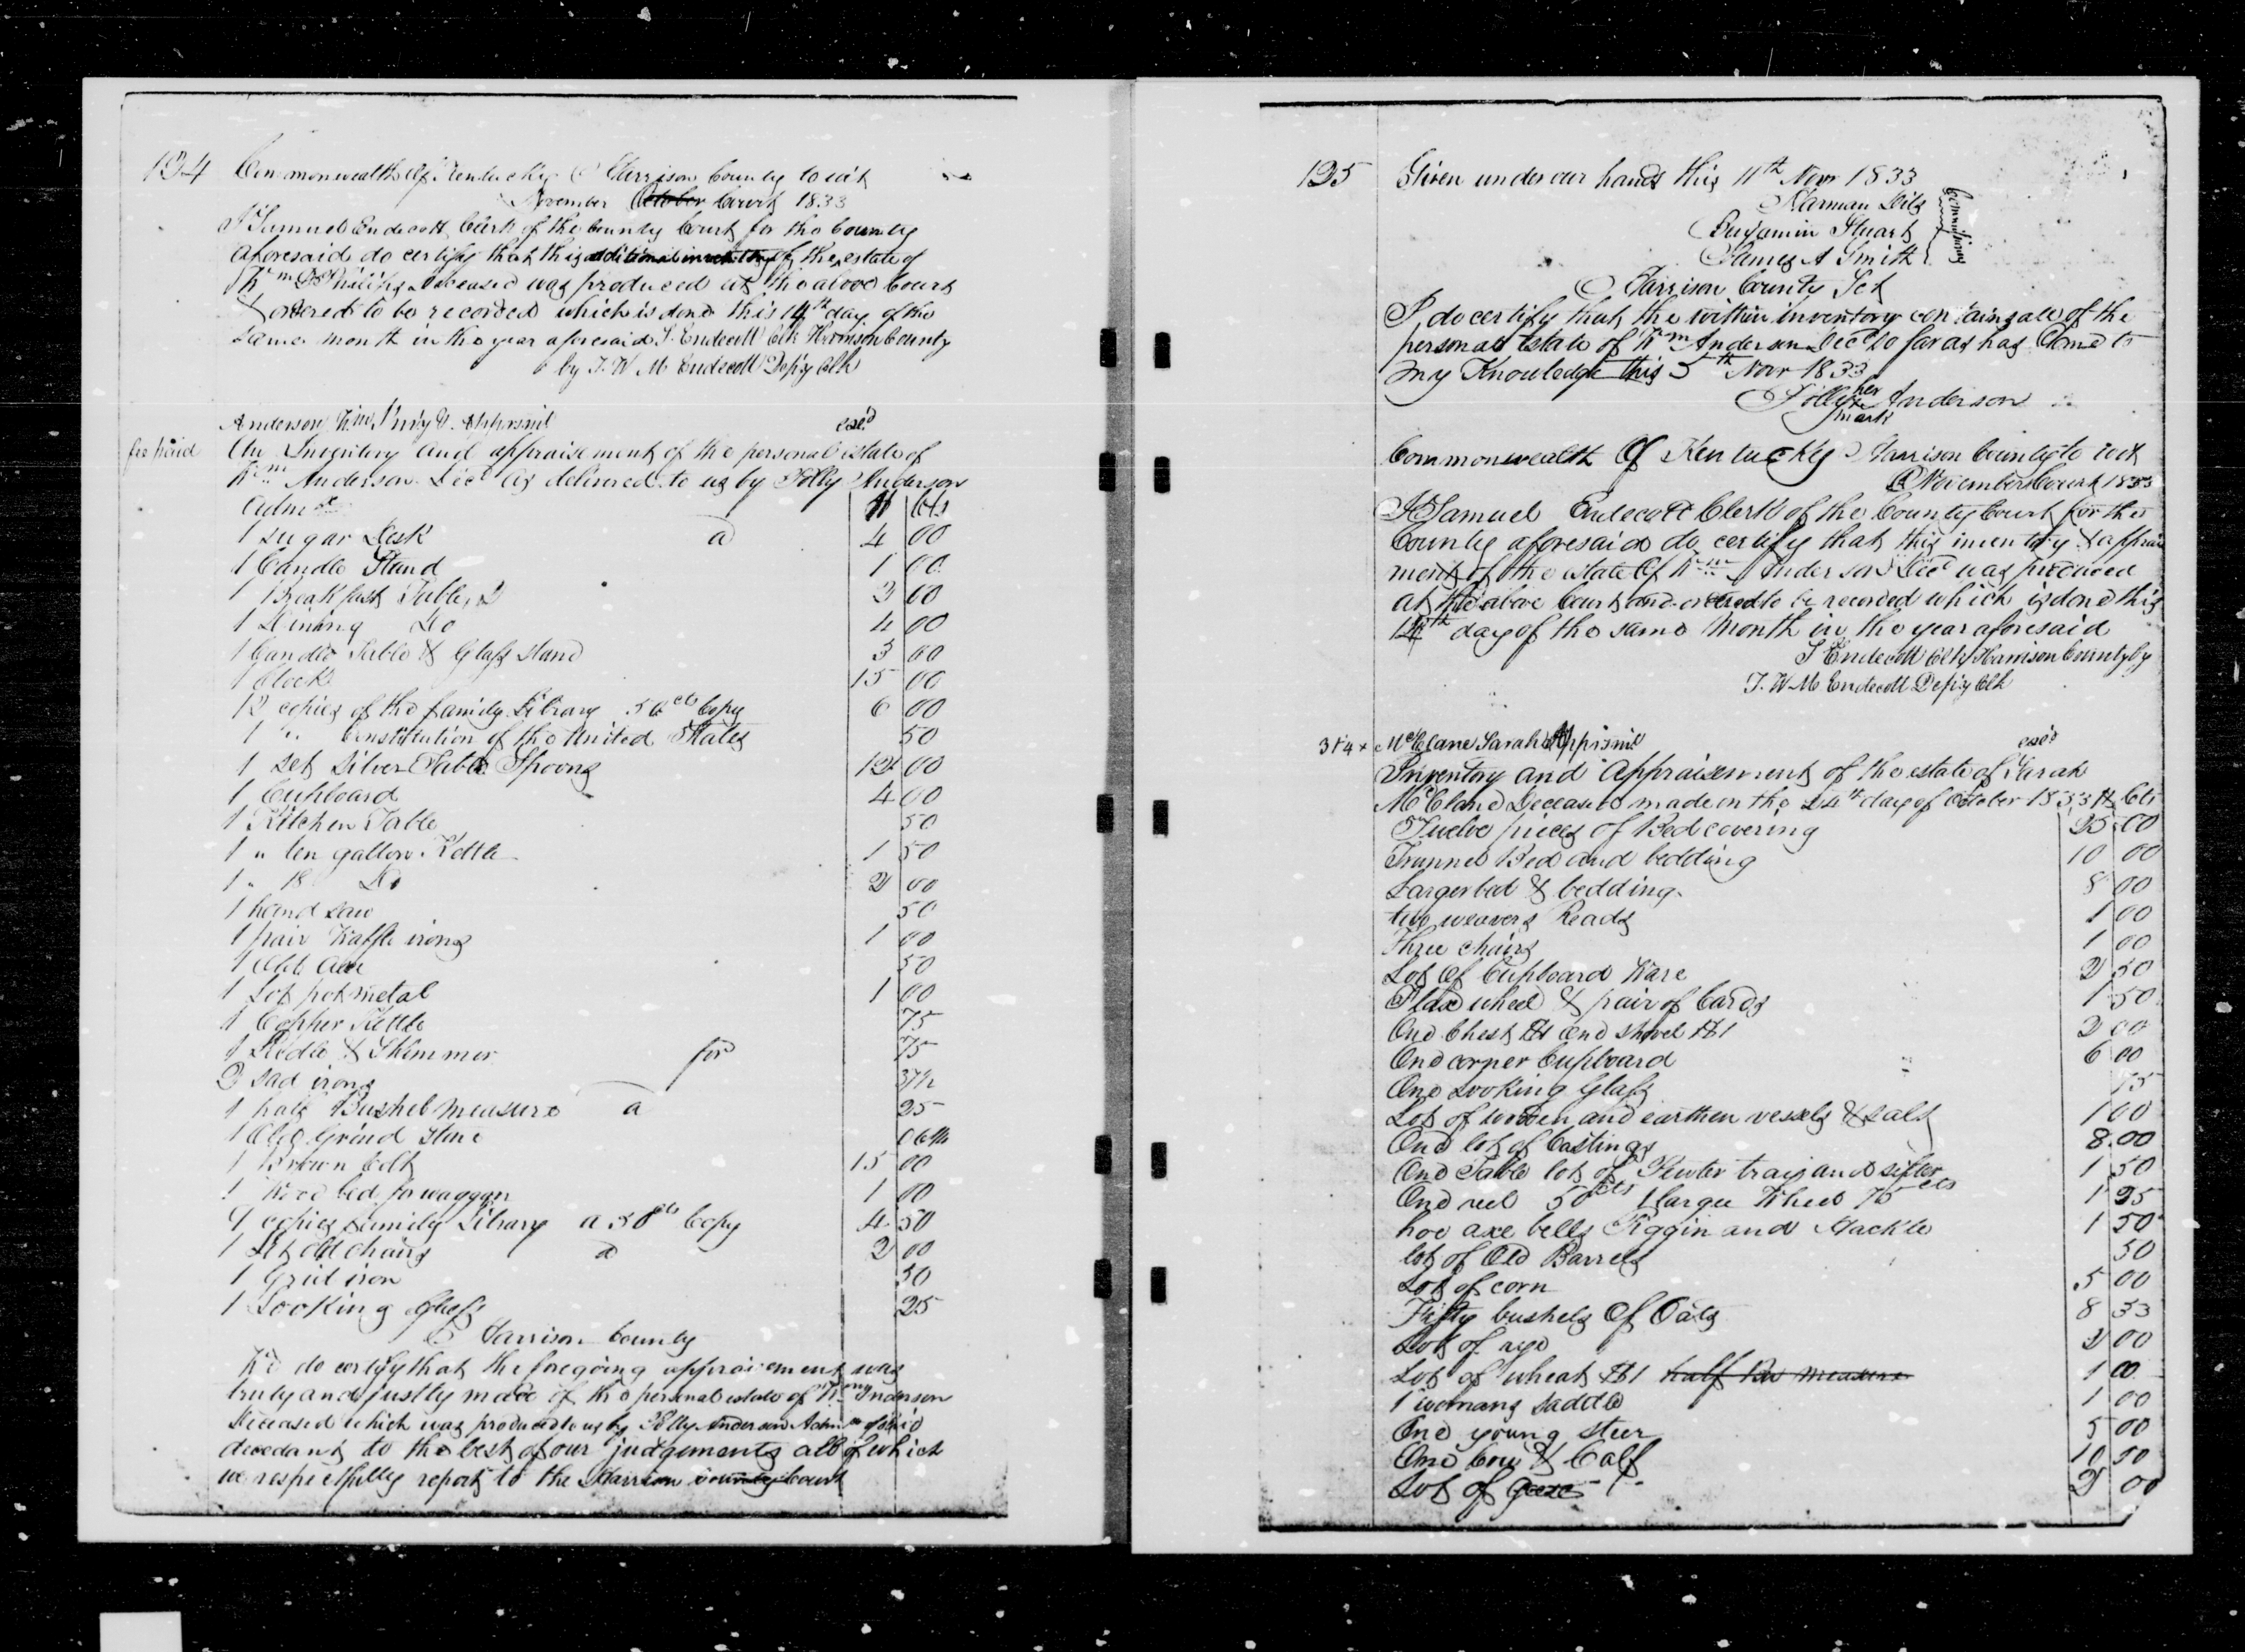 124 Commonwealth Of Kentucky Harrison County to wit
November October Court 1833
I Samuel Endecott Clerk of the County Court for the County
aforesaid do certify that this additional inventory of the estate of
Wm Phillips Deceased was produced at the above Court
& ordered to be recorded which is done this 14th day of the
same month in the year aforesaid S. Endecott Clk Harrison County
by J. W M Endecott Depy Clk
Anderson Wm Invy & Apprsmt exd
fee paid An Inventory and appraisement of the personal estate of
Wm Anderson Decd as delivered to us by Polly Anderson
Admx $ Cts
1 sugar Desk a 4 00
1 Candle Stand 1 00
1 Breakfast Table 3 00
1 Dining Do 4 00
1 Candle Table & Glass stand 3 00
1 Clock 15 00
12 copies of the family Library 50 cts Copy 6 00
1 " Constitution of the United States 50
1 set Silver Table Spoons 12 00
1 Cupboard 4 00
1 Kitchen Table 50
1 " ten gallon Kettle 1 50
1 " 18 Do 2 00
1 hand saw 50
1 pair Waffle irons 1 00
1 Old Axe 50
1 Lot pot metal 1 00
1 Copper Kettle 75
1 Ladle & Skimmer for 75
2 sad irons 37½
1 half Bushel measure a 25
1 Old Grind stone 06¼
1 Brown Colt 15 00
1 Wood bed for waggon 1 00
9 copies family Library a 50 cts Copy 4 50
1 Set old chairs a 2 00
1 Grid iron 50
1 Looking Glass 25
Harrison County
We do certify that the foregoing appraisement was
truly and justly made of the personal estate of Wm Anderson
Deceased which was produced to us by Polly Anderson Admx of said
decedant to the best of our judgements all of which
we respectfully report to the Harrison county Court
125 Given under our hands this 11th Novr 1833
Harman
Benjamin Stuart
James A Smith
Harrison County Sct
I do certify that the within inventory contains all of the
personal Estate of Wm Anderson Decd so far as has Come to
my Knowledge this 5th Novr 1833
Polly her x mark Anderson
Commonwealth Of Kentucky Harrison County to wit
November Court 1833
I Samuel Endecott Clerk of the County Court for the
County aforesaid do certify that this inventory & apprais
ment of the estate Of Wm Anderson Decd was produced
at the above Court and ordered to be recorded which is done this
14th day of the same Month in the year aforesaid
S Endecott Clk Harrison County by
J. W. M Endecott Depy Clk
McClane Sarah Apprismt exd
Inventory and Appraisement of the estate of Sarah
McClane Deceased made on the 24th day of October 1833 $ Cts
Twelve pieces of Bed covering 25 00
Trunnel Bed and bedding 10 00
Larger bed & bedding 8 00
two weavers Reads 1 00
three chairs 1 00
Lot Of Cupboard Ware 2 50
Flax wheel & pair of Cards 1 50
One Chest $1 one shovel $1 2 00
One corner Cupboard 6 00
One Looking Glass 75
Lot of wooden and earthen vessels & salt 1 00
One lot of Castings 8 00
One Table lot of Pewter trays and sifter 1 50
One reel 50 cts 1 large Wheel 75 cts 1 25
hoe axe bells Piggin and Hackle 1 50
lot of Old Barrels 50
Lot of corn 5 00
Fifty bushels Of Oats 8 33
Lot of rye 2 00
Lot of wheat $1 half Bu measure 1 00
1 womans saddle 1 00
One young steer 5 00
One Cow & Calf 10 50
Lot of geese 2 00